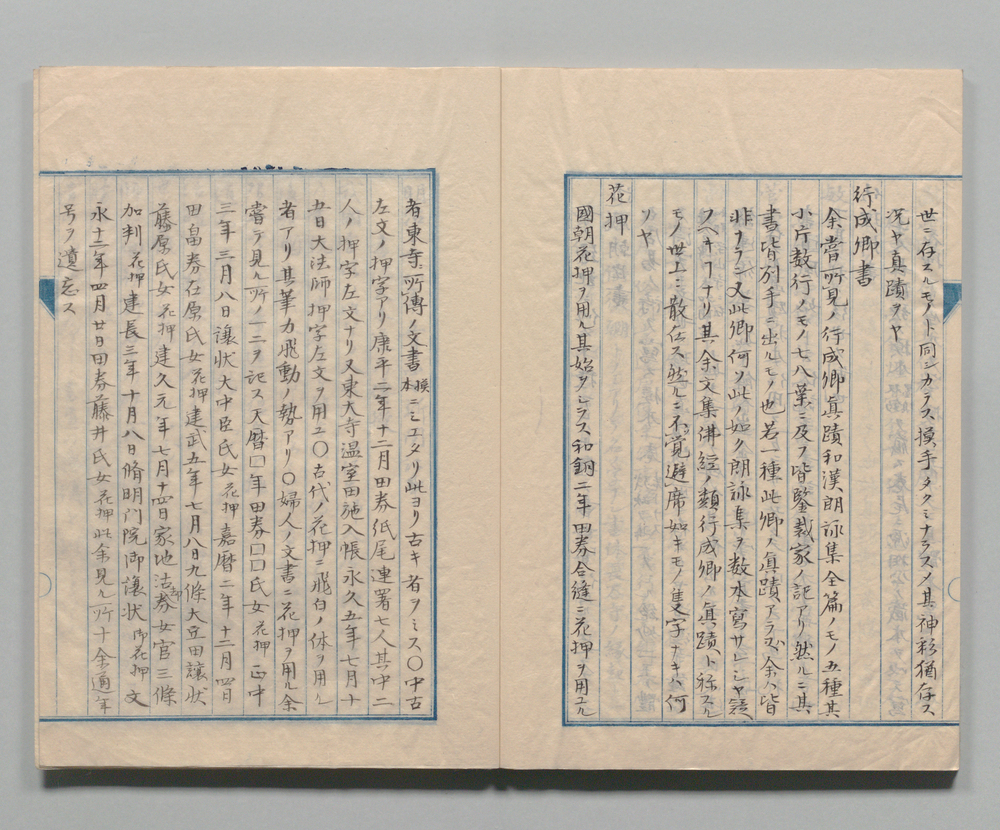 世ニ存スルモノト同シカラス摸手タクミナラスノ其神彩猶存ス
況ヤ真蹟ヲヤ
行成卿書
余嘗所見ノ行成卿眞蹟和漢朗詠集全篇ノモノ五種其
小片数行ノモノ七八葉ニ及フ皆鑒裁家ノ記アリ然ルニ其
書皆列手ニ出ルモノ也若一種此卿ノ眞蹟アラバ余ハ皆
非ナラン又此卿何ソ此ノ如ク朗詠集ヲ数本寫サレシヤ疑
スヘキ丁ナリ其余文集佛經ノ類行成卿ノ眞蹟ト称スル
モノ世上ニ散在ス然ルニ不覚避席如キモノ隻字ナキハ何
ソヤ
花押
國朝花押ヲ用ル其始ヲシラス和銅二年田券合縫ニ花押ヲ用エル
者東寺所傳ノ文書摸本ニミエタリ此ヨリ古キ者ヲミス〇中古
左文ノ押字アリ康平二年十二月田券紙尾連署七人其中二
人ノ押字左文ナリ又東大寺温室田施入帳永久五年七月十
五日大法師押字左文ヲ用エ〇古代ノ花押ニ飛白ノ体ヲ用ル
者アリ其華力飛動ノ勢アリ〇婦人ノ文書ニ花押ヲ用ル余
嘗テ見ル所ノ一二ヲ記ス天暦□年田券□□氏女花押正中
三年三月八日讓状大中臣氏女花押嘉暦二年十二月四日
田畠券在原氏女花押建武五年七月八日九條大豆田讓状
藤原氏女花押建久元年七月十四日家地沽却券女官三條
加判花押建長三年十月八日脩明門院御讓状御花押文
永十二年四月廿日田券藤井氏女花押此余見ル所十余通年
号ヲ遺忘ス